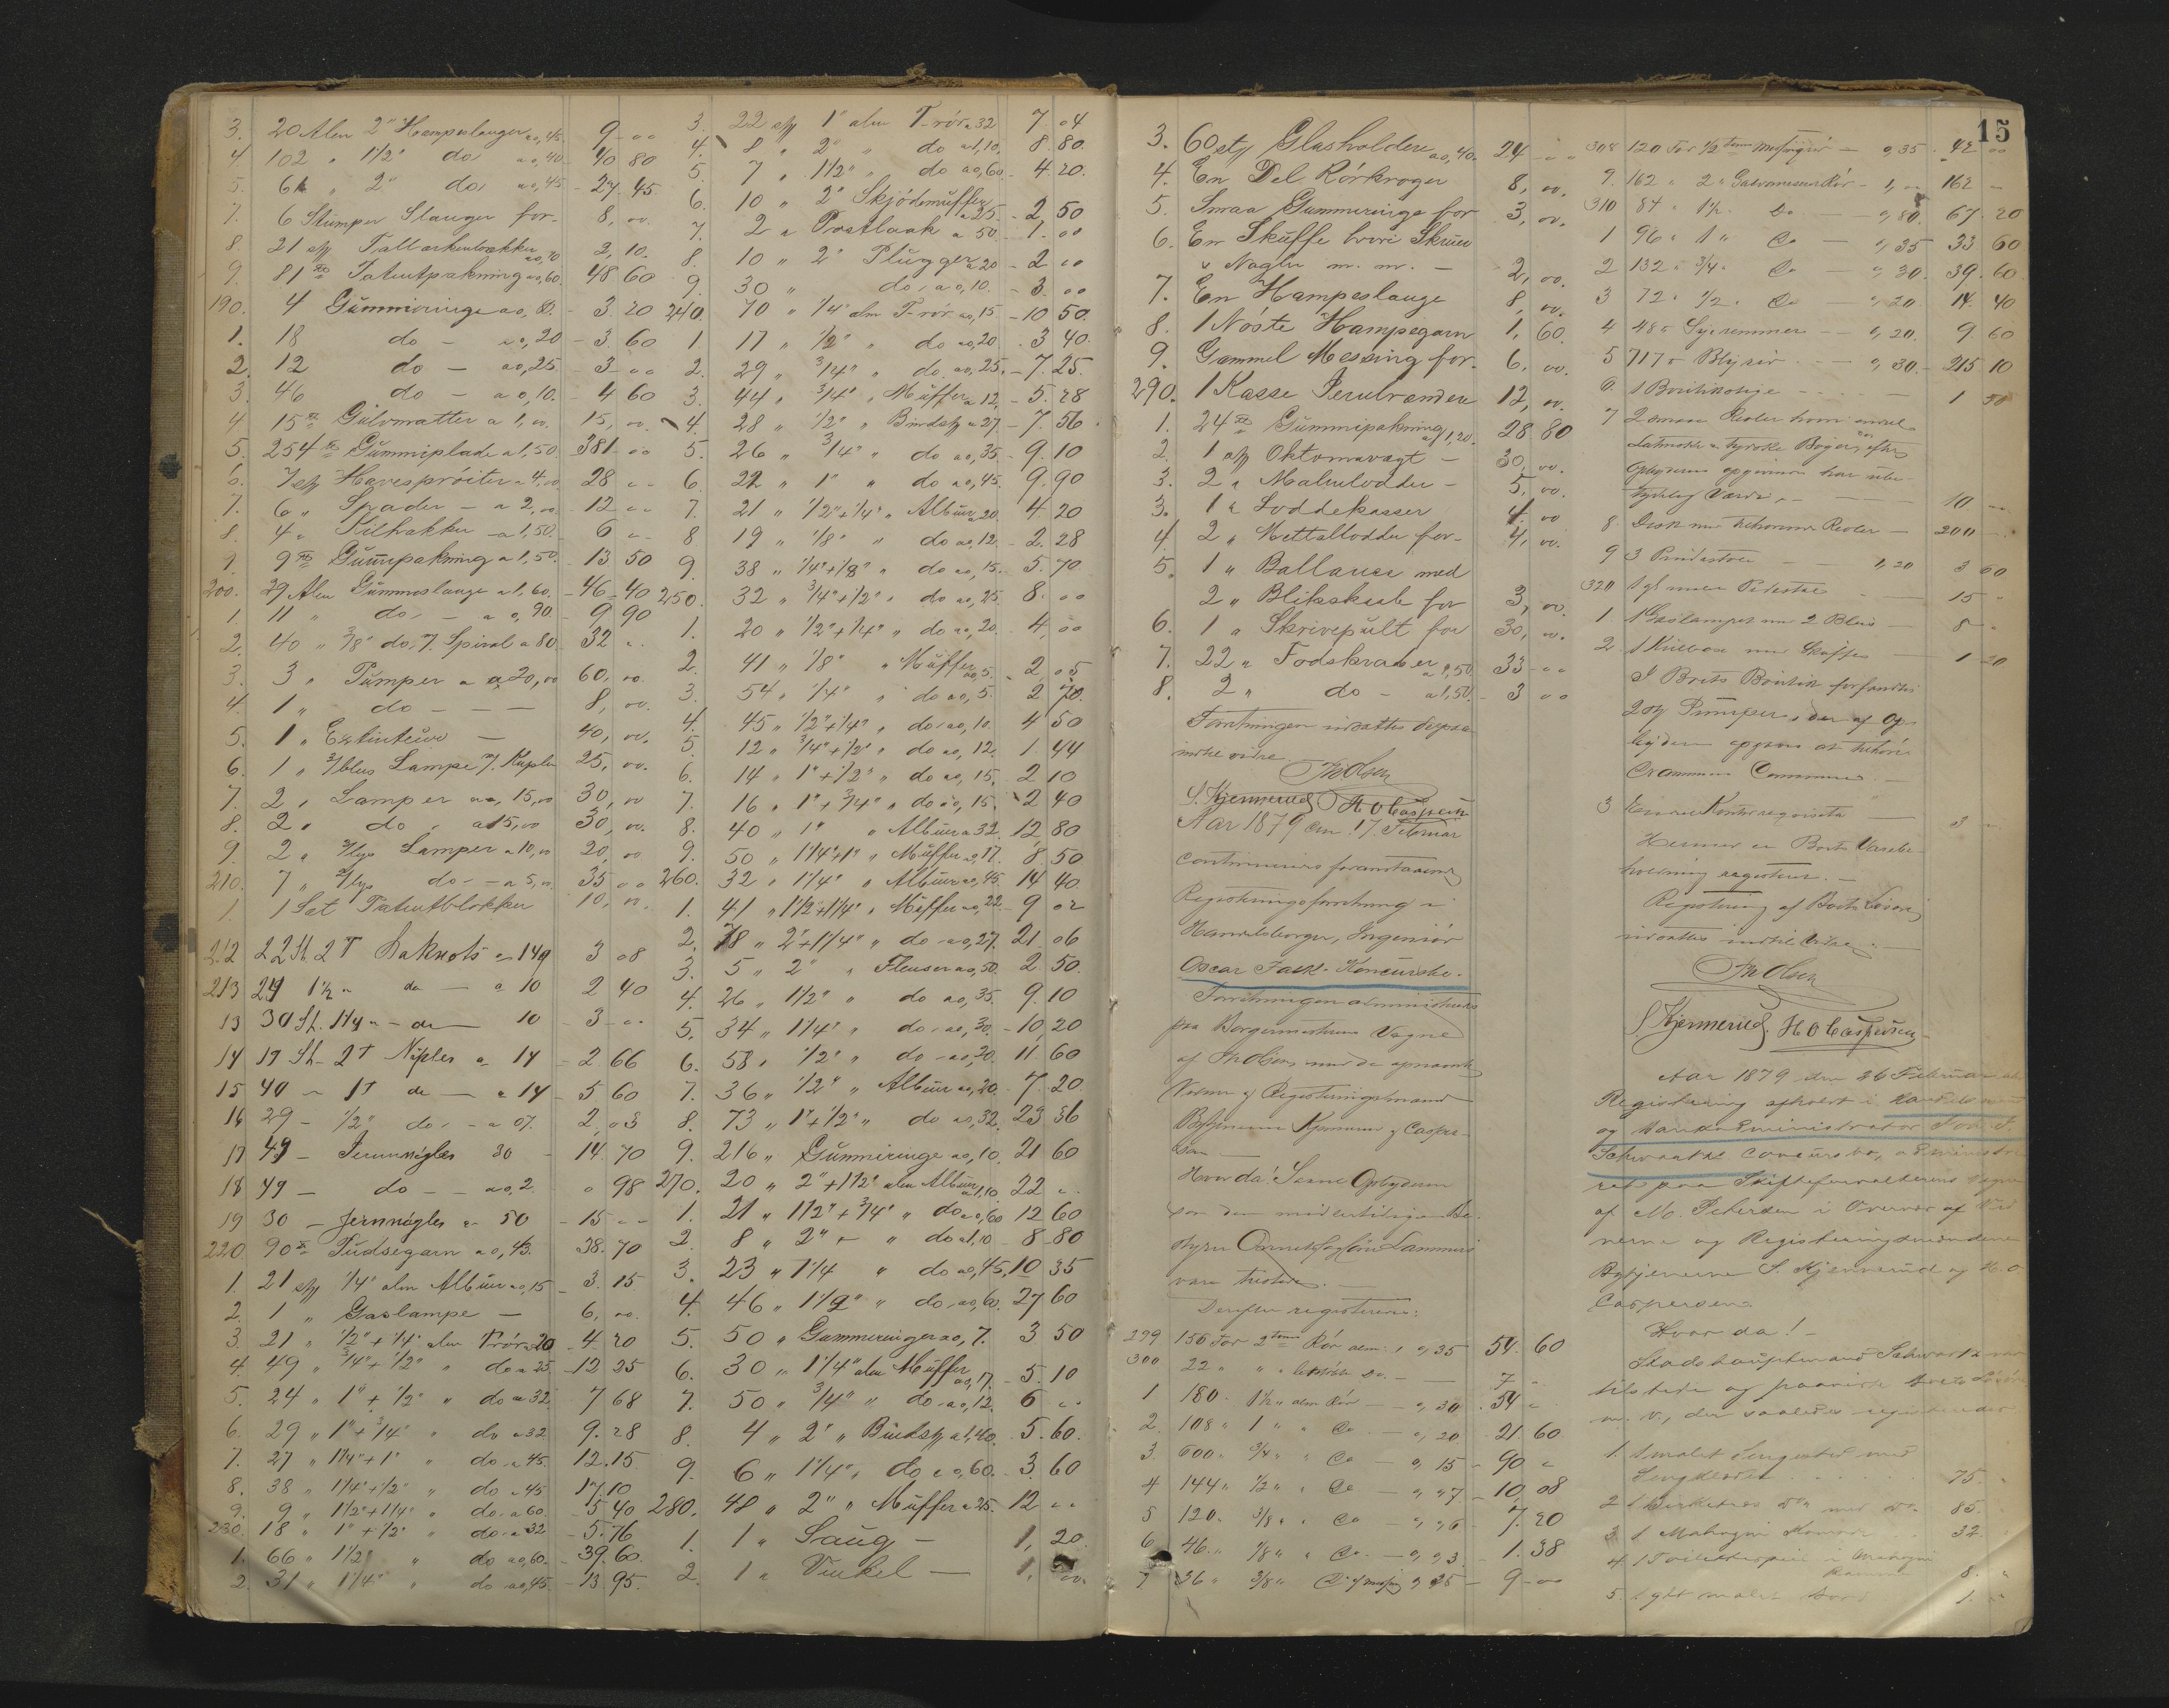 3. 20 Alen 2" Hampeslanger a 0,45. 9 - 00
4 102 " 1 1/2" do a 0,40 - 40 80
5. 61 " 2" do a 0,45 - 27.45.
7. 6 Stumper Slanger for - 8, 00.
8 21 stk a 0,10 2, 10.
9. 81 Patentpakning a 0,60. 48 60
190. 4 Gummiringe a 0,80. - 3. 20
1. 18 do - a 0,20 - 3. 60
2. 12 do - a 0,25 - 3 - 00
3. 46 do - a 0,10. - 4 60
4 15 Gulvmatter a 1,00. 15, 00.
5. 254 Gummiplade a 1,50 381 - 00
6. 7 stk Havesprøiter a 4.00 28 " -
7. 6 " Spader - a 2,00 - 12 " -
8. 4 " Pilhakker - a 1,50. - 6 " -
9. 9 Gumipakning a 1,50. - 13 50
200. 29 Alen Gummislange a 1,60. - 46 - 40
1. 11 " do - - a 0,90 - 9 90
2. 40 " 3/8" do, 7. Spiral a 80. 32 "
3. 3 " Pumper a 20,00 60, 00.
4. 1 " do - - - 8, 00.
5. 1 " Extinteur - 40, 00.
6. 1 " Lampe 25, 00.
7. 2 " Lamper a 15,00 30, 00
8. 2 " do " a 15,00 30, 00.
9. 2 " Lamper a 10,00 20, 00
210. 7 " do - - a 5,00. 35 - 00
1. 1 Set Patentblokker 10, 00.
212 22 St. 2 T a 14 3 08
213 24 1 1/2 " do - a 10 2 40
13 30 St. 1 1/4 " - do - 10 - 3 - "
14 19 St - 2 T Nipler a 14 - 2 66
15 40 - 1 T do - a 14 - 5 60
16 29 - 1/2" do - - a 07. 2,03
17 49 - Jernnagler 30 - 14. 70
18 49 - do - - a 0,2. 0 98
19 30 - Jernnagler a 50 - 15 - -
220. 90 Pudsegarn a 0,43. 38. 70
1. 21 stk 1/4" alm Albuer a 0,15 - 3. 15
2. 1 " Gaslampe - 6, 00.
3. 21 " 1/2" + 1/4" alm T-rör a 20 - 4 - 20
4. 49 " 3/4" + 1/2" " do a 25. - 12 25
5. 24 " 1" + 1/2" " do a 32. 7 68
6. 29 " 1" + 3/4" " do a 32 9. 28
7. 27 " 1 1/4" + 1" " do a 45. 12. 15
8. 38 " 1 1/4" + 1/2" " do a 45 17,10
9. 9 " 1 1/2" + 1 1/4" " do a 60. - 5 40
230. 18 " 1" + 1/2" " do a 32 - 5. 76
1. 66 " 1 1/2" " do a 0,60. - 39,60.
2. 31 " 1 1/4" " do a 0,45. - 13. 95.
3. 22 stk 1" alm T-rör a 32 7. 04
4. 8 " 2" " do a 1,10. 8. 80.
5. 7 " 1 1/2" " do a 0,60 - 4. 20.
6. 10 " 2" Skjödemuffer a 25. - 2, 50
7. 2 " a 50 - 1. 00
8. 10 " 2" Plugger a 20 - 2 00
9. 30 " do, a 0,10. - 3. 00
240. 70 " 1/4" alm T-rör a 0,15 - 10 50.
1. 17 " 1/2" " do a 0,20 . 3 40.
2. 29 " 3/4" " do a 0,25. - 7. 25.
3. 44 " 3/4" " Muffer a 12 - 5. 28
4. 28 " 1/2" " Bindstk a 27 - 7. 56
5. 26 " 3/4" " do a 0,35. - 9. 10
6. 22 " 1" " do a 0,45. 9. 90
7. 21 " 1/2" + 1/4" " Albuer a 20. 4 20
8 19 " 1/8" " do a 0,12. - 2. 28
9. 38 " 1/4" + 1/8" " do a 0,15. - 5. 70
250. 32 " 3/4" + 1/2" " do a 0,25 8. 00
1. 20 " 1/2" + 1/4" " do a 0,20. - 4, 00
2. 41 " 1/8" " Muffer a 0,5. 2, 05
3. 54 " 1/4" " do a 0,5. 2 70.
4. 45 " 1/2" + 1/4" " do a 0,10. 4 50
5. 12 " 3/4" + 1/2" " do a 0,12. 1. 44
6. 14 " 1" + 1/2" " do a 0,15. 2 10
7. 16 " 1" + 3/4" " do a 0,15 2 40
8. 40 " 1" " Albuer a 32. 12 80
9. 50 " 1 1/4" + 1" " Muffer a 0,17. 8, 50
260. 32 " 1 1/4" " Albuer a 0,45. 14 40.
1. 41 " 1 1/2" + 1 1/4" " Muffer a 0,22. - 9 02
2. 78 " 2" + 1 1/4" " do a 0,27. 21. 06
3. 5 " 2" " Flenser a 0,50. 2 50.
4. 26 " 1 1/2" " do a 0,35. 9. 10
5. 34 " 1 1/4" " do a 0,30. - 10, 20
6. 58 " 1/2" " do a 0,20. 11. 60
7. 36 " 1/2" " Albuer a 0,20. - 7. 20.
8. 73 " 1" + 1/2" " do a 0,32. 23 36
9. 216 " Gummiringe a 0,10. 21 60
270. 20 " 2" + 1 1/2" alm Albuer a 1.10. 22 "
1. 21 " 1 1/2" + 3/4" " do a 0,60 12 60
2. 8 " 2" - " do a 1,10 - 8 - 80
3. 23 " 1 1/4 " do a 0,45. 10 35
4. 46 " 1 1/2" " do a 0,60. 27 60
5. 50 " Gummeringer a 0,7. 3 50
6. 30 " 1 1/4" alm Muffer a 0,17. - 5. 10
7. 50 " 3/4" " do a 0,12. 6 "
8. 4 " 2" " Bindstk a 1,40. . 5. 60.
9. 6 " 1 1/4" " do a 0,60. - 3. 60
280. 48 " 2" " Muffer a 25. 12 "
1. 1 " Saug - 1, 20.
2. 1 " Vinkel - 1. 00.
15
3. 60 stk Glasholdere a 0,40. 24 - 00
4. En Del Rörkroger 8, 00.
5. Smaa Gummeringe for 3, 00.
6. En Skuffe hvori Skruer
& Nagler m. m. - 2, 00.
7. En Hampeslange 8, 00.
8. 1 Nöste Hampegarn 1, 60.
9. Gammel Messing for. 6, 00.
290. 1 Kasse 12, 00.
1. 24 Gummipakning a 1,20. 28 80
2. 1 stk - 30, 00.
3. 2 " - 5, 00.
3. 1 " Loddekasser 4. 00
4. 2 " Mettallodder for - 4, 00.
5. 1 " Ballance med
2 " Blikskaale for 3, 00.
6. 1 " Skrivepult for 30, 00.
7. 22 " Fodskraber a 1,50 33 - 00
8. 2 " do - a 1,50 - 3 00
Forretningen udsattes derpaa
indtil videre
Th Olsen
S. Kjennerud H O Caspersen
Aar 1879 den 17. Februar
continueres foranstaaende
Registreringsforretning i
Handelsborger, Ingeniör
Oscar Koncursbo.
Forretningen administreredes
paa Borgermesterens Vegne
af Th Olsen, med de opnævnte
Vidner og Registreringsmænd
Bytjenerne Kjennerud & Casper-
sen
Hvor da! Samme Opbyderen
som den midlertidige Be-
styrer Lammers
vare tilstede. -
Derefter registreredes:
299 156 Fod 2 Rör alm. a 0,35 54. 60
300 22 " " do. - 7 "
1 180 " 1 1/2 " alm Rör - 0,30 . 54 "
2. 108 " 1 " " do - 0,20 21 60
3. 600 " 3/4 " " do - 0,15 90 "
4 144 " 1/2 " " do - 0,07 10,08
5 120. 3/8 " " do - 0,06 7. 20
6 46. " 1/8 " " do. - 0,03 1. 38
7 36 " 3/8 " do af messing 0,25 - 9 - 00
308 120 Fod 1/2 Messingrör - 0,35 . 42 00
9. 162 " 2 " Galvaniseret Rör - 1,00 162 -
310 84 " 1 1/2 " do - 0,80. 67. 20
1 96 " 1 " do - 0,35 33 60
2 132 " 3/4 " do - 0,30. 39. 60
3 72 " 1/2 " do - 0,20. 14. 40
4 48 Syremmer - - 0,20. 9 60
5 717 Blyrör - - 0,30. - 215 10
6. 1 Boutikstige - - - 1 50
7 2 smaa Reoler hvori endel
Latinske & tydske Bøger, efter
Opbyderens opgivende har ube-
tydelig Værdi, - - - 10 -
8. Disk med tilhørende Reoler - 200 -
9 3 Pindestole - 1,20 3 60
320 1 gl 15 "
1. 1 Gaslampe med 2 Blus - 8 "
2. 1 Kulboxe med Skuffe - 1 20
I Boets Boutik forfandtes
2 stk Pumper, der af Op-
byderen opgaves at tilhöre
Commune -
3 Endel Kontorrequisita 3 -
Hermed er Boets Varebe-
holdning registreret. -
Registrering af Boets Løsöre
udsattes indtil videre. -
Th Olsen
S Kjennerud. H O Caspersen
Aar 1879 den 26 Februar
Registrering afholdt i
og
Schwartz Concursbo, administre-
ret paa Skifteforvalterens Vegne
af M. Petersen i Overvær af Vid-
nerne og Registreringsmændene
Bytjenerne S. Kjennerud og H. O
Caspersen.
Hvor da! -
Stadshauptmand Schwartz var
tilstede og paaviste Boets Løsöre
m. v., der saaledes registreredes
1. 1 malet Sengested med
Sengklæder . . . 75. "
2 1 Birketræs do med do - 85. "
3. 1 Mahogni Komode 32. "
4 1 Toiletspeil i Mahogni
Ramme 8. "
5. 1 glt malet Bord 1. "